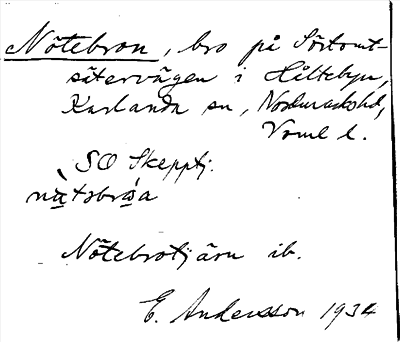 Nötebron, bro på Sörtomt-
sätervägen i Hältebyn,
Karlanda sn, Nordmarks hd,
Verml l.
SO Skepptj.
nätsbròa
Nötebrotjärn ib.
E. Andersson 1934